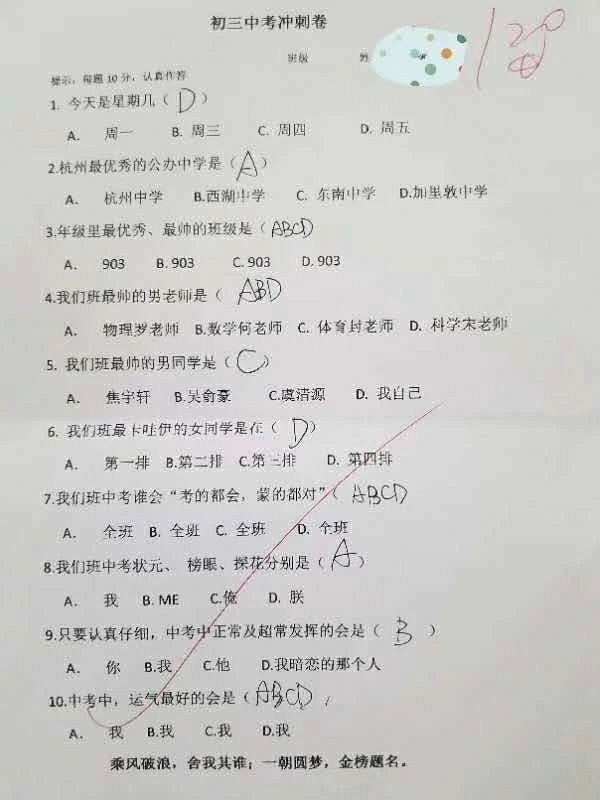 初三中考冲刺卷
120
班级 姓
提示：每题 10 分，认真作答
1. 今天是星期几（ D ）
A. 周一 B. 周三 C. 周四 D. 周五
2.杭州最优秀的公办中学是（ A ）
A. 杭州中学 B.西湖中学 C. 东南中学 D.加里敦中学
3.年级里最优秀、最帅的班级是（ ABCD
A. 903 B. 903 C. 903 D. 903
4.我们班最帅的男老师是（ ABD
A. 物理罗老师 B.数学何老师 C. 体育封老师 D. 科学宋老师
5. 我们班最帅的男同学是（ C ）
A. 焦宇轩 B.吴俞豪 C.虞清源 D. 我自己
6. 我们班最卡哇伊的女同学是在（ D ）
A. 第一排 B.第二排 C.第三排 D. 第四排
7.我们班中考谁会“考的都会，蒙的都对”（ ABCD
A. 全班 B. 全班 C. 全班 D. 全班
8.我们班中考状元、 榜眼、探花分别是（ A ）
A. 我 B. ME C.俺 D. 朕
9.只要认真仔细，中考中正常及超常发挥的会是（ B ）
A. 你 B.我 C.他 D.我暗恋的那个人
10.中考中，运气最好的会是（ ABCD ）
A. 我 B.我 C.我 D.我
乘风破浪，舍我其谁；一朝圆梦，金榜题名。